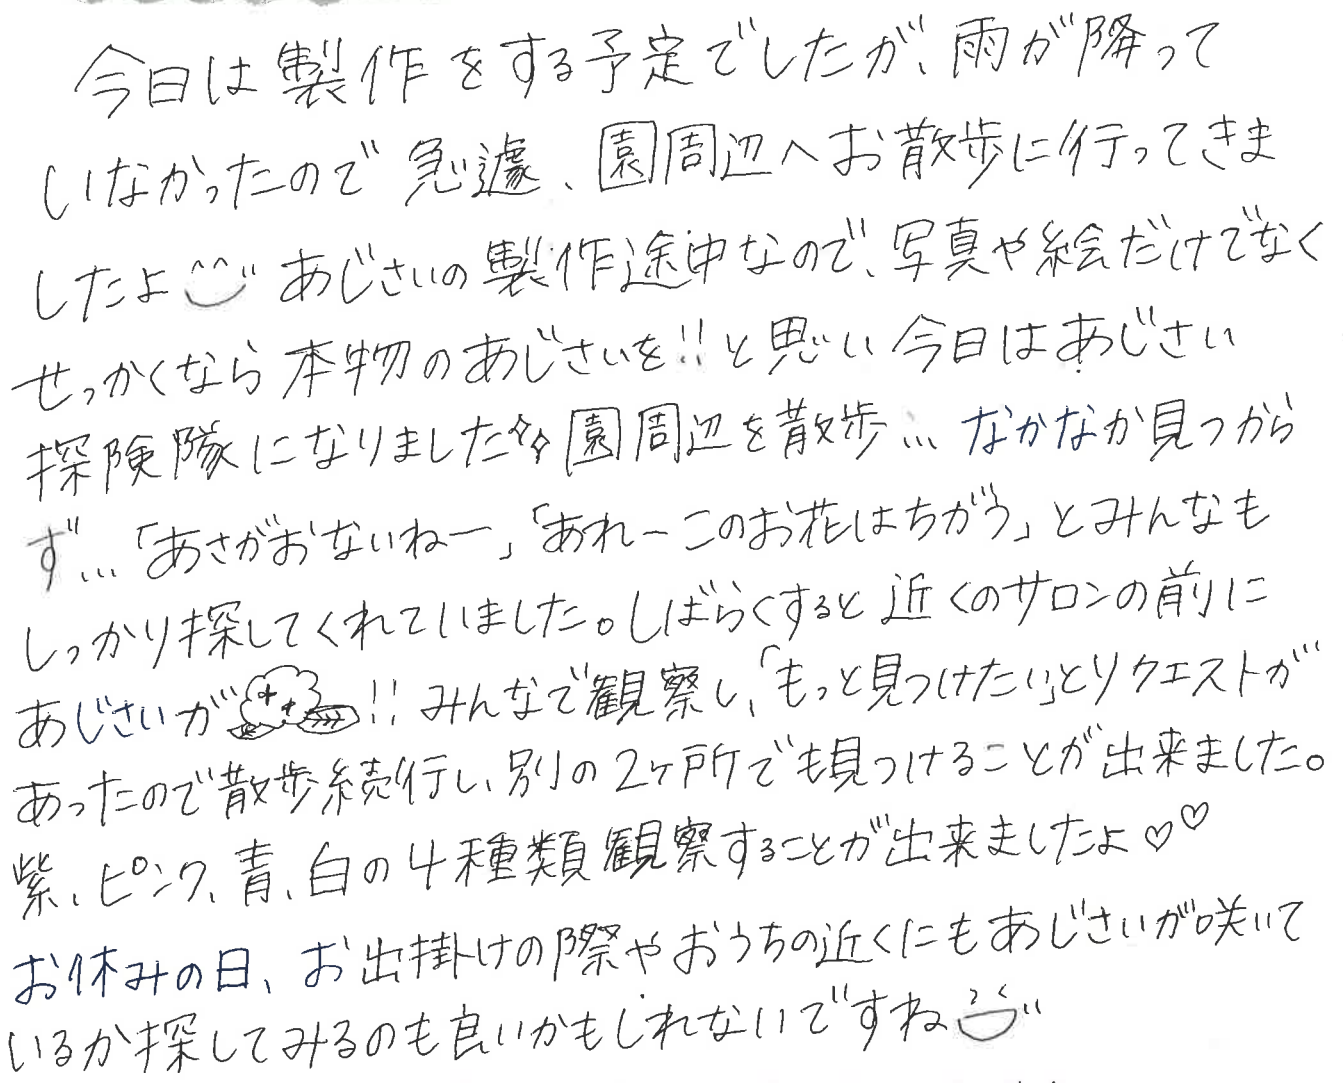 今日は製作をする予定でしたが、雨が降って
いなかったので急遽、園周辺へお散歩に行ってきま
したよ あじさいの製作途中なので、写真や絵だけでなく
せっかくなら本物のあじさいを!!と思い今日はあじさい
探険隊になりました 園周辺を散歩…なかなか見つから
ず…「あさがおないねー」「あれーこのお花はちがう」とみんなも
しっかり探してくれていました。しばらくすると近くのサロンの前に
あじさいが!!みんなで観察し、「もっと見つけたい」とリクエストが
あったので散歩続行し、別の2ヶ所でも見つけることが出来ました。
紫、ピンク、青、白の4種類観察することが出来ましたよ♡♡
お休みの日、お出掛けの際やおうちの近くにもあじさいが咲いて
いるか探してみるのも良いかもしれないですね